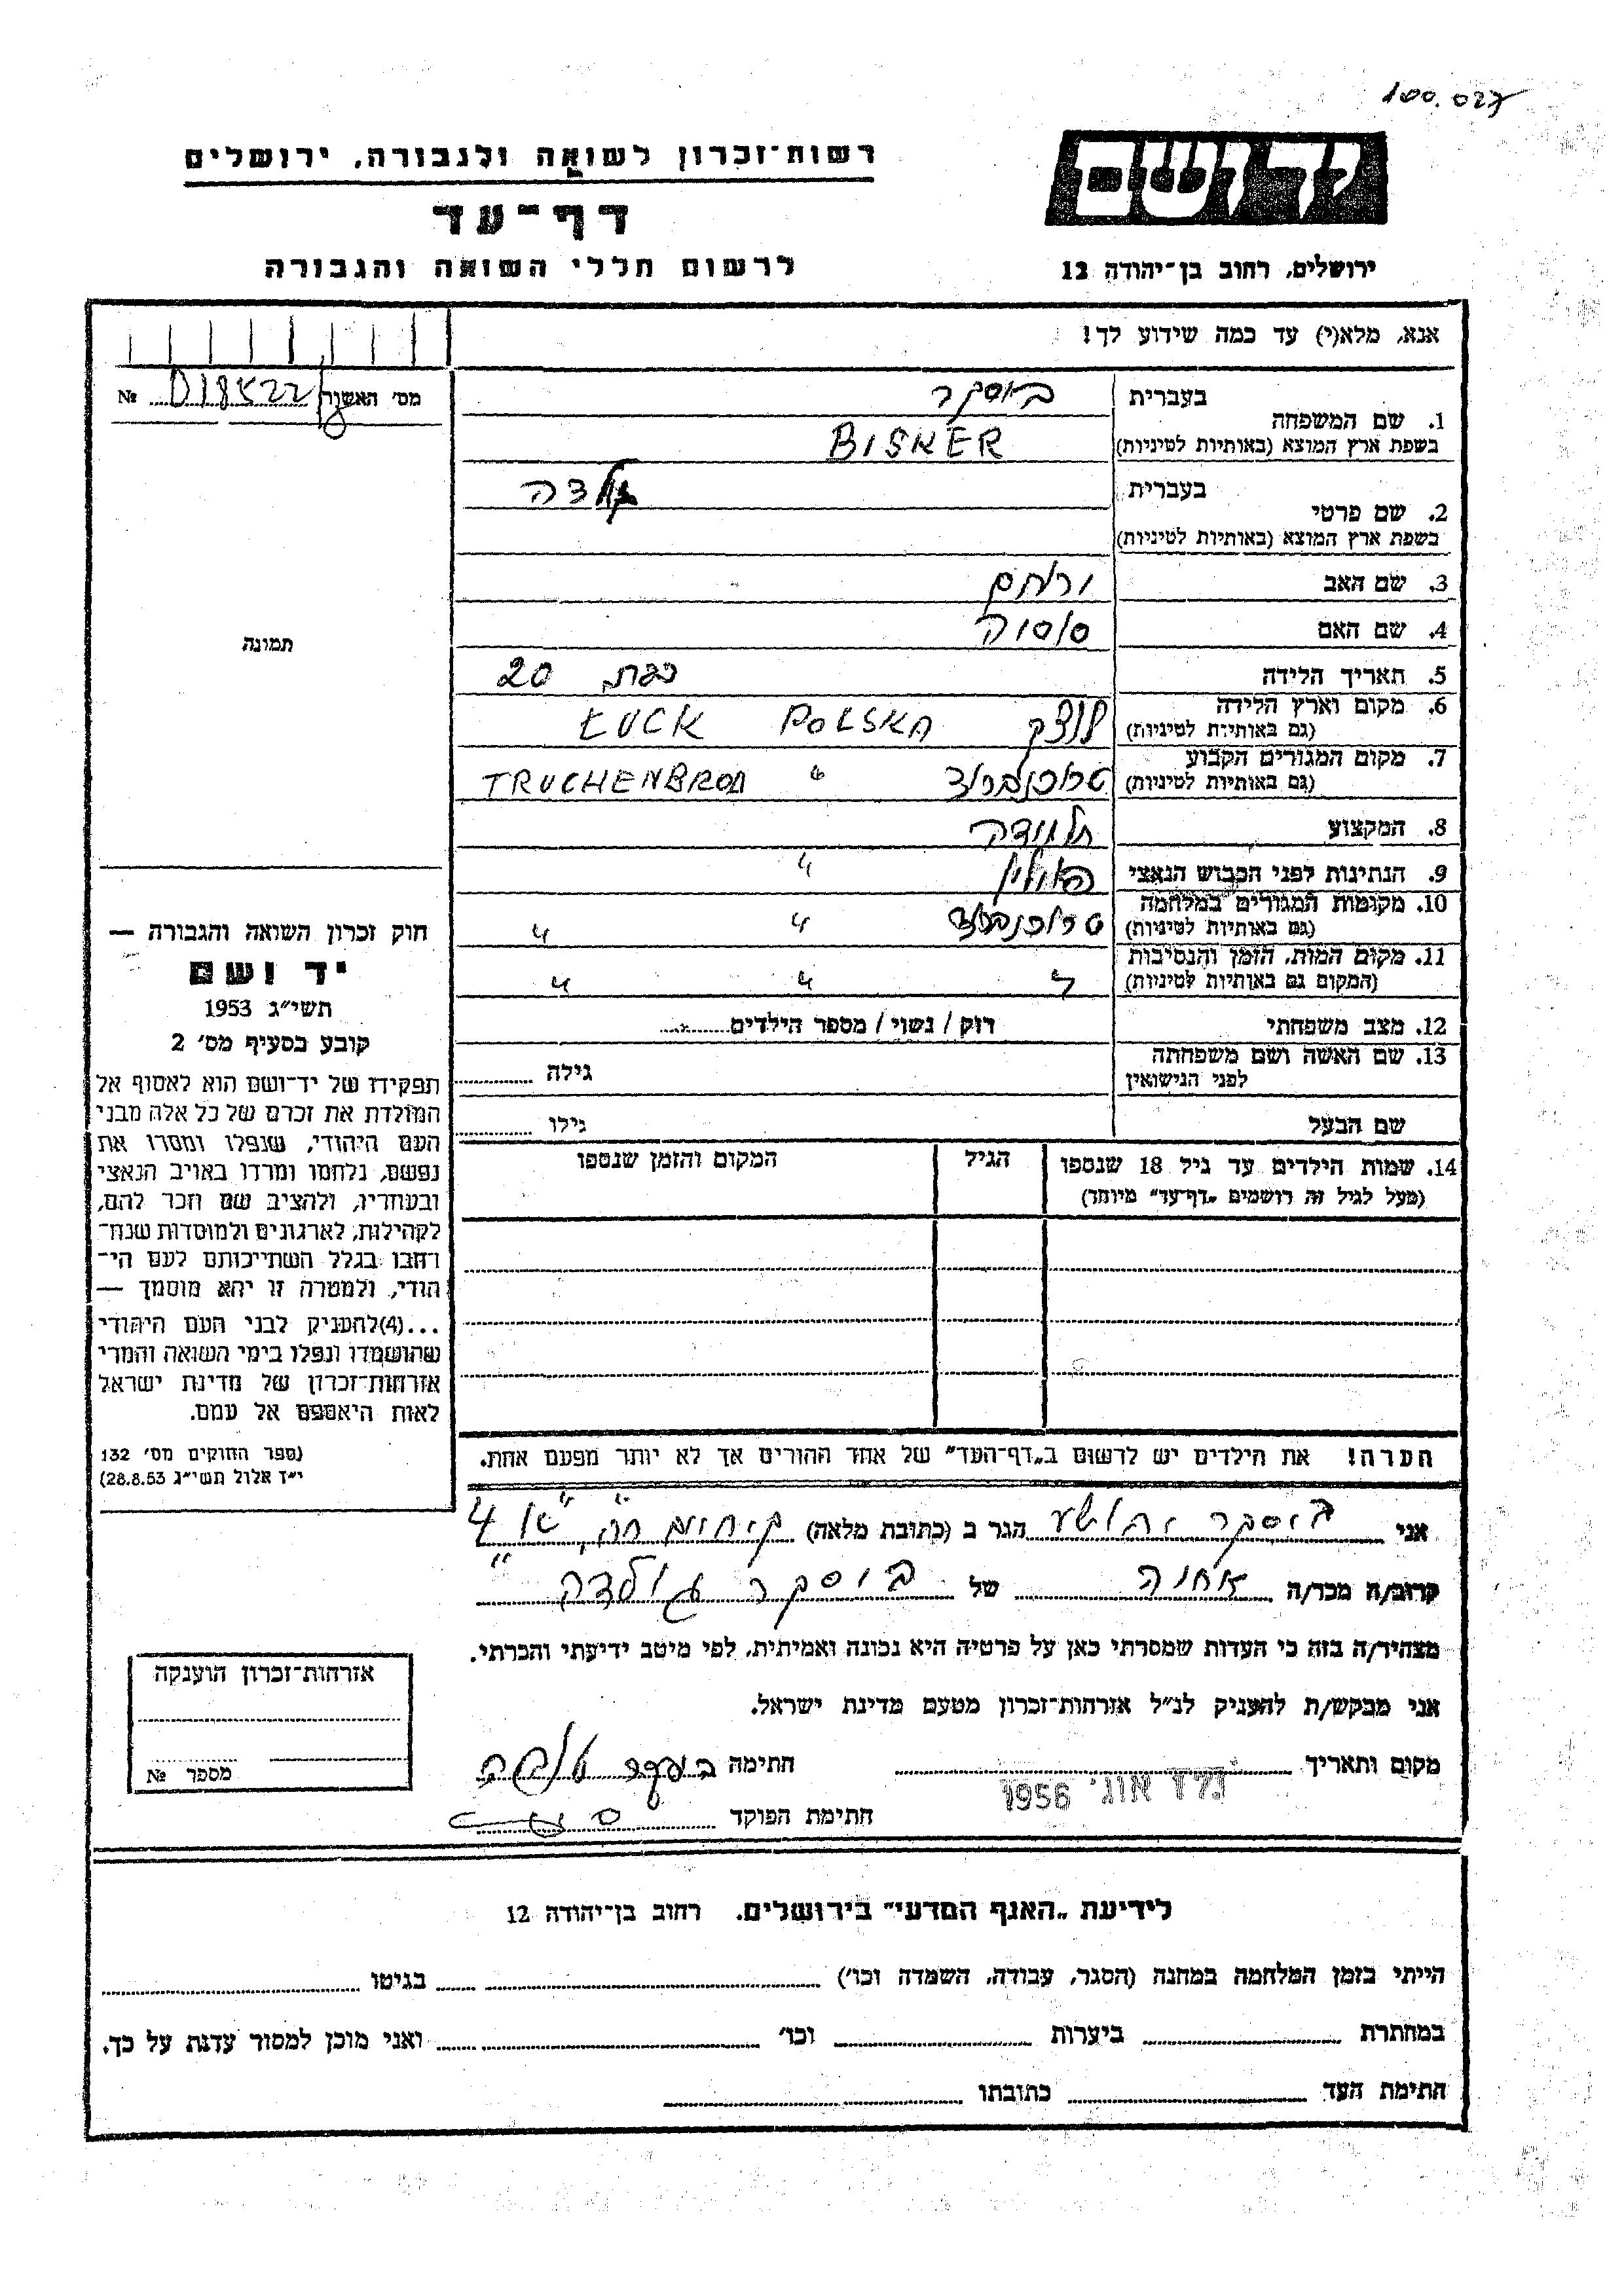 100.027
רשות־זכרון לשואה ולגבורה, ירושלים
יד ושם
דף־עד
לרשום חללי השואה והגבורה
ירושלים, רחוב בן־יהודה 12
אנא, מלא(י) עד כמה שידוע לך!
מס' האשור № 018522
1. שם המשפחה
בעברית ביסקר
בשפת ארץ המוצא (באותיות לטיניות) BISKER
2. שם פרטי
בעברית גולדה
בשפת ארץ המוצא (באותיות לטיניות)
3. שם האב ירוחם
4. שם האם סוסיה
5. תאריך הלידה כבת 20
6. מקום וארץ הלידה (גם באותיות לטיניות) לוצק POLSKA ŁUCK
7. מקום המגורים הקבוע (גם באותיות לטיניות) טרוכנברוד " TRUCHENBROD
8. המקצוע
9. הנתינות לפני הכבוש הנאצי פולין "
10. מקומות המגורים במלחמה (גם באותיות לטיניות) טרוכנברוד " "
11. מקום המות, הזמן והנסיבות (המקום גם באותיות לטיניות) " " "
12. מצב משפחתי רוק / נשוי / מספר הילדים
13. שם האשה ושם משפחתה לפני הנישואין גילה
שם הבעל גילו
14. שמות הילדים עד גיל 18 שנספו (מעל לגיל זה רושמים „דף־עד" מיוחד)
הגיל
המקום והזמן שנספו
הערה! את הילדים יש לרשום ב„דף־העד" של אחד ההורים אך לא יותר מפעם אחת.
תמונה
חוק זכרון השואה והגבורה —
יד ושם
תשי"ג 1953
קובע בסעיף מס' 2
תפקידו של יד־ושם הוא לאסוף אל
המולדת את זכרם של כל אלה מבני
העם היהודי, שנפלו ומסרו את
נפשם, נלחמו ומרדו באויב הנאצי
ובעוזריו, ולהציב שם וזכר להם,
לקהילות, לארגונים ולמוסדות שנח־
רבו בגלל השתייכותם לעם הי־
הודי, ולמטרה זו יהא מוסמך —
...(4)להעניק לבני העם היהודי
שהושמדו ונפלו בימי השואה והמרי
אזרחות־זכרון של מדינת ישראל
לאות היאספם אל עמם.
(ספר החוקים מס' 132
י"ז אלול תשי"ג 28.8.53)
אני ביסקר הגר ב (כתובת מלאה)
קרוב/ה מכר/ה אחיה של ביסקר גולדה
מצהיר/ה בזה כי העדות שמסרתי כאן על פרטיה היא נכונה ואמיתית, לפי מיטב ידיעתי והכרתי.
אני מבקש/ת להעניק לנ"ל אזרחות־זכרון מטעם מדינת ישראל.
מקום ותאריך אוג' 1956 חתימה
חתימת הפוקד
אזרחות־זכרון הוענקה
מספר №
לידיעת „האגף המדעי" בירושלים. רחוב בן־יהודה 12
הייתי בזמן המלחמה במחנה (הסגר, עבודה, השמדה וכו') בגיטו
במחתרת ביערות וכו' ואני מוכן למסור עדות על כך.
חתימת העד כתובתו